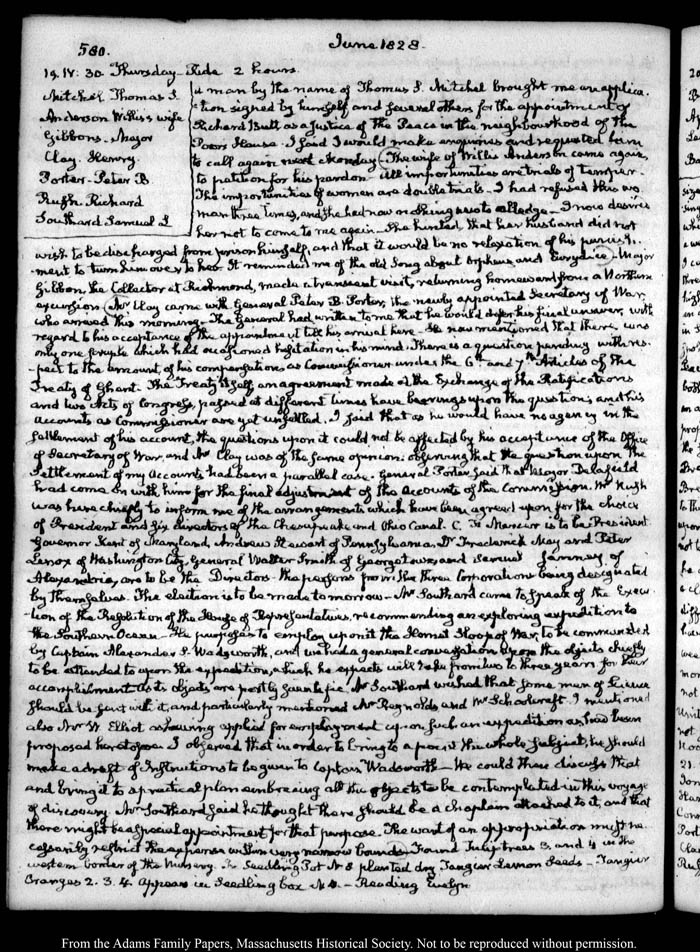 580.
June 1828.
19. IV: 30. Thursday - Ride 2 hours.
Mitchel Thomas S.
Anderson Willis's wife
Gibbons - Major
Clay. Henry
Porter - Peter B
Rush. Richard
Southard Samuel L
A man by the name of Thomas S. Mitchel brought me an applica
tion signed by himself and several others for the appointment of
Richard Butt as a Justice of the Peace in the neighbourhood of the
Poor House - I said I would make enquiries and requested him
to call again next Monday - The wife of Willis Anderson came again,
to petition for his pardon - All importunities are trials of temper -
The importunities of women are double trials. I had refused this wo
man three times, and she had now nothing new to alledge - I now desired
her not to come to me again - She hinted that her husband did not
wish to be discharged from prison himself, and that it would be no relaxation of his punish
ment to turn him over to her. It reminded me of the old Song about Orpheus and Eurydice - Major
Gibbon, the Collector at Richmond, made a transient visit, returning homeward from a Northern
excursion (Mr Clay came with General Peter B. Porter, the newly appointed Secretary of War,
who arrived this morning - The General had written to me that he would defer his final answer, with
regard to his acceptance of the appointment till his arrival here - He now mentioned that there was
only one scruple which had occasioned hesitation in his mind. There is a question pending with res-
-pect to the amount of his compensation as Commissioner under the 6th and 7th Articles of the
Treaty of Ghent - The Treaty itself, an agreement made at the Exchange of the Ratifications
and two Acts of Congress, passed at different times have bearings upon the question, and his
accounts as Commissioner are yet unsettled. I said that as he would have no agency in the
settlement of his account, the questions upon it could not be affected by his acceptance of the Office
of Secretary of War, and Mr Clay was of the same opinion: observing that the question upon the
settlement of my Accounts had been a parallel case. General Porter said that Major Delafield
had come on with him for the final adjustment of the accounts of the Commission. Mr Rush
was here chiefly to inform me of the arrangements which have been agreed upon for the choice
of President and six directors of the Chesapeake and Ohio Canal. C. F. Mercer is to be President
Governor Kent of Maryland, Andrew Stewart of Pennsylvania, Dr Frederick May and Peter
Lenox of Washington City, General Walter Smith of Georgetown, and Samuel Janney, of
Alexandria, are to be the Directors - the persons from the three Corporations being designated
by themselves. The election is to be made tomorrow - Mr Southard came to speak of the Execu
-tion of the Resolution of the House of Representatives, recommending an exploring expedition to
the Southern Ocean - He proposes to employ upon it the Hornet Sloop of War, to be commanded
by Captain Alexander S. Wadsworth, and we had a general conversation upon the objects chiefly
to be attended to upon the expedition, which he expects will take from two to three years for
accomplishment. As its objects are partly scientific, Mr Southard wished that some man of Science
should be sent with it, and particularly mentioned Mr Reynolds and Mr Schoolcraft. I mentioned
also Mr W. Elliot as having applied for employment upon such an expedition as had been
proposed heretofore. I observed that in order to bring to a point the whole subject, he should
make a draft of Instructions to be given to Captain Wadsworth - We could then discuss that
and bring it to a practical plan embracing all the objects to be contemplated in this voyage
of discovery. Mr Southard said he thought there should be a chaplain attached to it, and that
there might be a special appointment for that purpose. The want of an appropriation must ne
cessarily restrict the expenses within very narrow bounds - Found Tulip trees 3. and 4 in the
western border of the Nursery. In Seedling Pot N. 8 planted dry Tangier Lemon Seeds - Tangier
Oranges 2. 3. 4. appear in Seedling box - Reading Evelyn
From the Adams Family Papers, Massachusetts Historical Society. Not to be reproduced without permission.